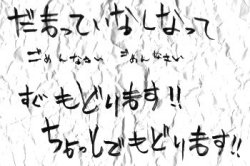 だまっていなくなって
ごめんなさい ごめんなさい
すぐもどります!!
ちょっとでもどります!!